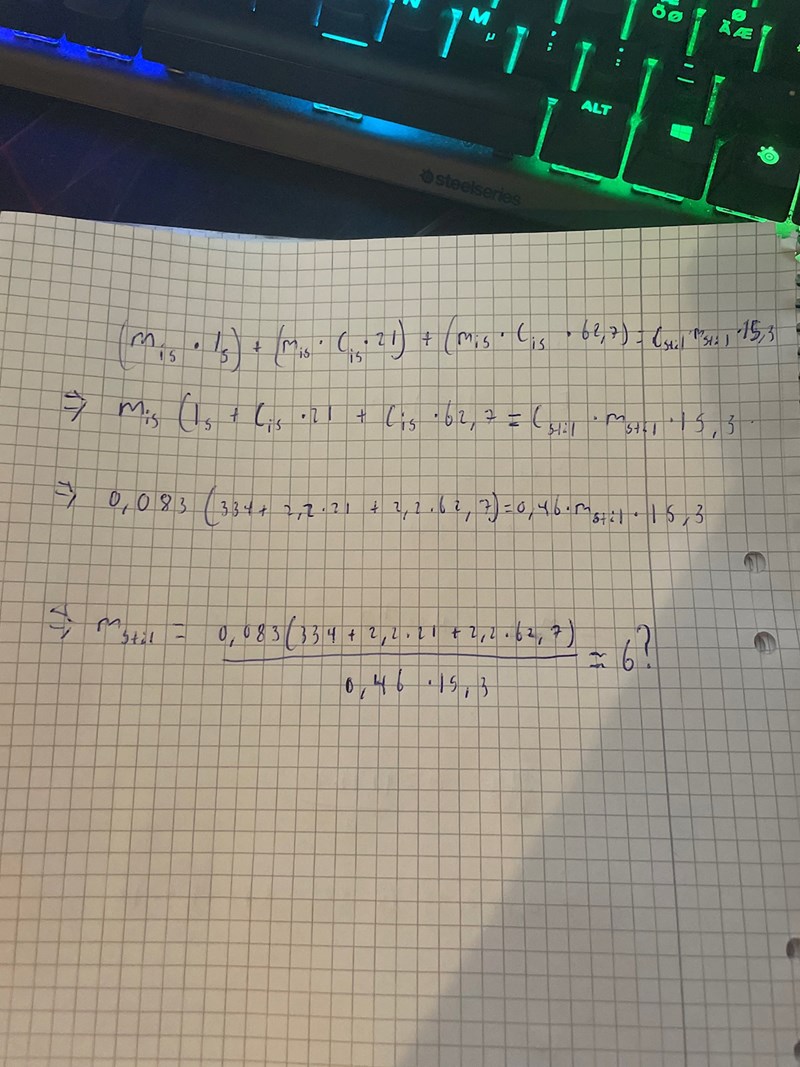 N M µ : : – ÖØ ÄÆ
ALT
steelseries
(m_is · l_s) + (m_is · C_is · 21) + (m_is · C_is · 62,7) = C_stål · m_stål · 15,3
⇒ m_is (l_s + C_is · 21 + C_is · 62,7 = C_stål · m_stål · 15,3
⇒ 0,083 (334 + 2,2 · 21 + 2,2 · 62,7) = 0,46 · m_stål · 15,3
⇒ m_stål = 0,083(334 + 2,2 · 21 + 2,2 · 62,7) / 0,46 · 15,3 ≈ 6?